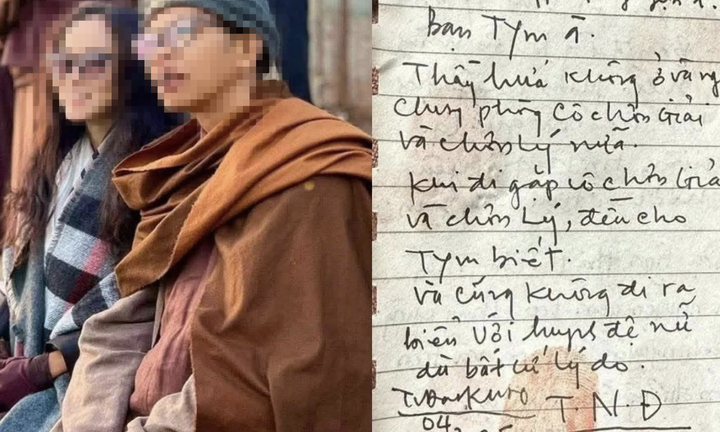 Bạn Tym à.
Thầy hứa không ở vãng
chung phòng cô chơn Giải
và chơn Lý nữa.
Khi đi gặp cô chơn Giả
và chơn Lý, đều cho
Tym biết.
và cũng không đi ra
biển với đệ nữ
dù bất cứ lý do.
T.N.Đ
04